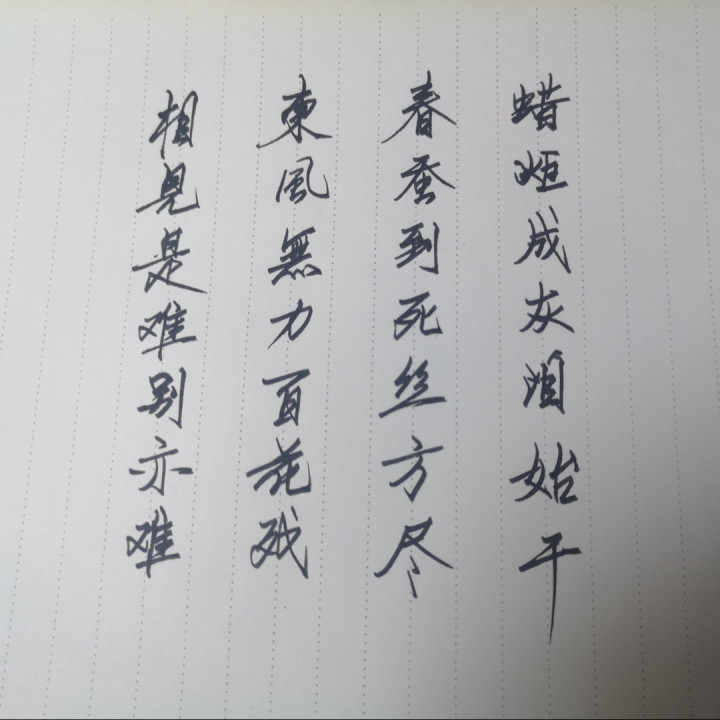 相見是难别亦难
東風無力百花残
春蚕到死丝方尽
蜡炬成灰泪始干